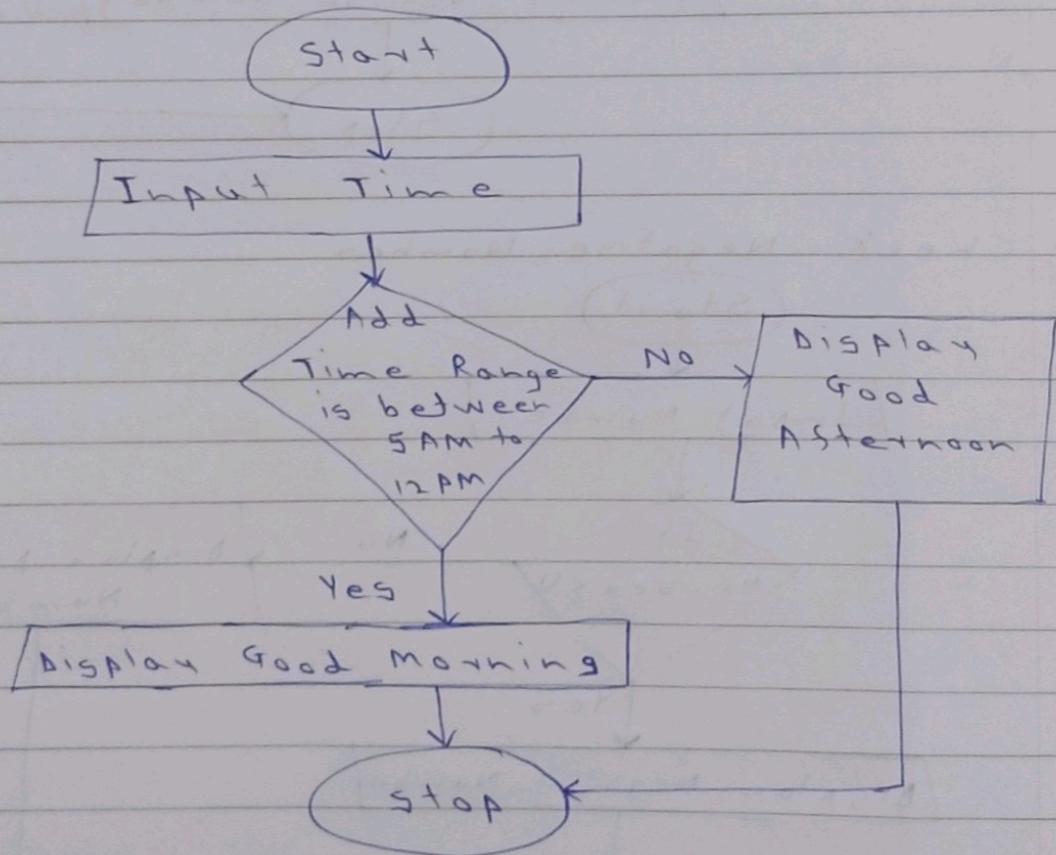 Start
Input Time
Add
Time Range
is between
5 AM to
12 PM
No
Display
Good
Afternoon
Yes
Display Good Morning
Stop